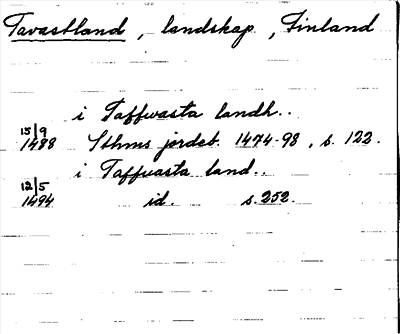 Tavastland, landskap, Finland
i Taffwasta landh..
15/9
1488 Sthms jordeb. 1474-98, s. 122.
i Taffuasta land..
12/5
1494 id. s. 252.